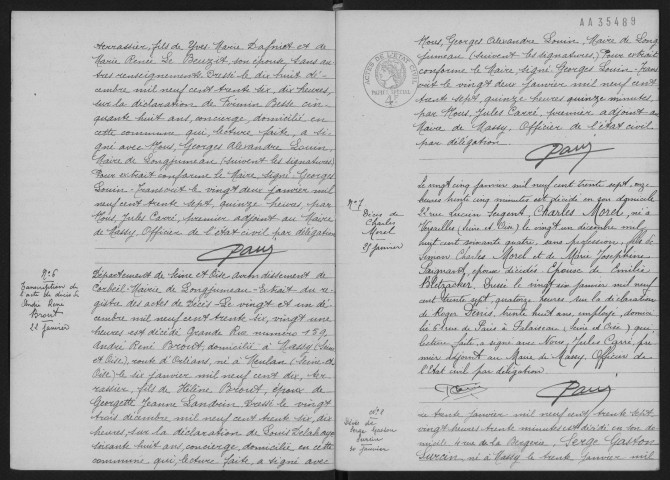 terrassier, fils de Yves Marie Dafniet et de
Marie Renée Le Beuzit, son épouse, sans au
tres renseignements. Dressé le dix huit dé-
cembre mil neuf cent trente six, dix heures,
sur la déclaration de Firmin Besse cin-
quante huit ans, concierge, domicilié en
cette commune qui, lecture faite, a si-
gné avec Nous, Georges Alexandre Louin,
Maire de Longjumeau (suivent les signatures)
Pour extrait conforme le Maire, signé Georges
Louin. Transcrit le vingt deux janvier mil
neuf cent trente sept, quinze heures, par
Nous, Jules Carré, premier adjoint au Maire
de Massy, Officier de l'état civil par délégation
N° 6
Transcription de
l'acte de décès de
André René
Brouit
22 janvier
Département de Seine et Oise. Arrondissement de
Corbeil. Mairie de Longjumeau. Extrait du re
gistre des actes de décès. Le vingt et un dé-
cembre mil neuf cent trente six, vingt une
heures est décédé Grande Rue numéro 159,
André René Brouit, domicilié à Massy (Seine
et Oise), route d'Orléans, né à Meulan (Seine et
Oise) le six janvier mil neuf cent dix, ter-
rassier, fils de Hélène Brouit, époux de
Georgette Jeanne Landrin. Dressé le vingt
trois décembre mil neuf cent trente six, dix
heures, sur la déclaration de Louis Delahaye
soixante huit ans, concierge, domicilié en cette
commune qui, lecture faite, a signé avec
AA35489
ACTES DE L'ETAT CIVIL
Nous, Georges Alexandre Louin, Maire de Long
jumeau (suivent les signatures). Pour extrait
conforme le Maire signé Georges Louin. Trans
crit le vingt deux janvier mil neuf cent
trente sept, quinze heures quinze minutes
par Nous, Jules Carré, premier adjoint au
Maire de Massy, Officier de l'état civil
par délégation.
N° 7
Décès de
Charles
Morel
25 janvier
Le vingt cinq janvier mil neuf cent trente sept, onze
heures trente cinq minutes est décédé en son domicile
rue Lucien Sergent, Charles Morel, né à
Versailles (Seine et Oise) le vingt un décembre mil
huit cent soixante quatre, sans profession, fils de
Simon Charles Morel et de Marie Joséphine
époux décédés. Epoux de Emilie
Dressé le vingt six janvier mil neuf
cent trente sept, quatorze heures sur la déclaration
de Roger Denis trente huit ans, employé, domici
lié rue de Paris à Palaiseau (Seine et Oise) qui,
lecture faite, a signé avec Nous, Jules Carré, pre
mier adjoint au Maire de Massy Officier de
l'état civil par délégation.
N° 8
Décès de
Serge Gaston
30 janvier
Le trente janvier mil neuf cent trente sept
vingt heures trente minutes est décédé en son do
micile rue de la Bogera, Serge Gaston
né à Massy le trente janvier mil